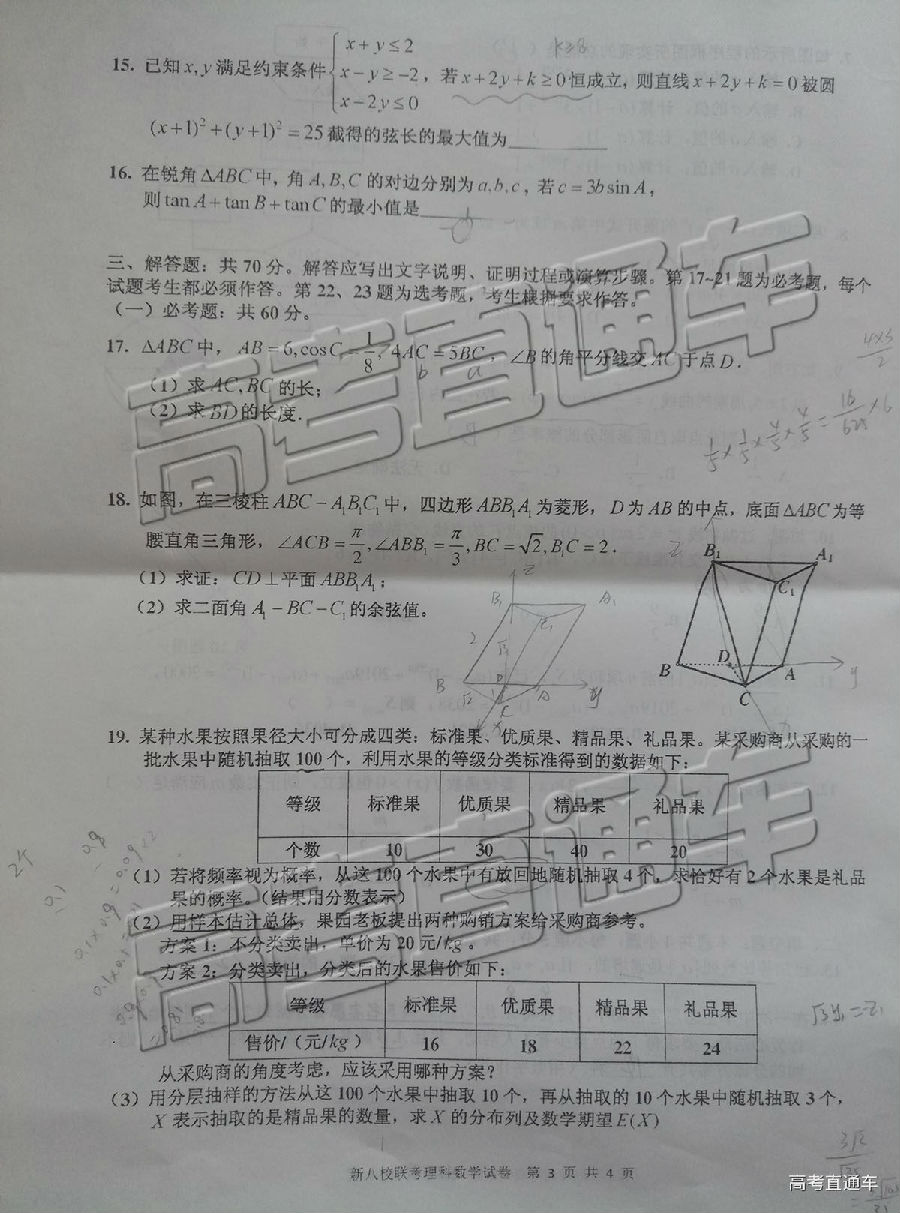 15. 已知x,y满足约束条件{x+y≤2
x−y≥−2
x−2y≤0
，若x+2y+k≥0恒成立，则直线x+2y+k=0被圆
(x+1)²+(y+1)²=25截得的弦长的最大值为________
16. 在锐角△ABC中，角A,B,C的对边分别为a,b,c，若c=3b sin A，
则tan A+tan B+tan C的最小值是______
三、解答题：共70分。解答应写出文字说明、证明过程或演算步骤。第17~21题为必考题，每个
试题考生都必须作答。第22、23题为选考题，考生根据要求作答。
（一）必考题：共60分。
17. △ABC中，AB=6,cosC=1/8, 4AC=5BC，∠B的角平分线交AC于点D.
b a
（1）求AC,BC的长；
（2）求BD的长度.
4×3/2
1/5×1/5×4/5×4/5=16/625×6
18. 如图，在三棱柱ABC−A₁B₁C₁中，四边形ABB₁A₁为菱形，D为AB的中点，底面△ABC为等
腰直角三角形，∠ACB=π/2,∠ABB₁=π/3,BC=√2,B₁C=2.
（1）求证：CD⊥平面ABB₁A₁；
（2）求二面角A₁−BC−C₁的余弦值。
B₁ A₁ C₁ B D A C
19. 某种水果按照果径大小可分成四类：标准果、优质果、精品果、礼品果。某采购商从采购的一
批水果中随机抽取100个，利用水果的等级分类标准得到的数据如下：
等级 标准果 优质果 精品果 礼品果
个数 10 30 40 20
（1）若将频率视为概率，从这100个水果中有放回地随机抽取4个，求恰好有2个水果是礼品
果的概率。（结果用分数表示）
（2）用样本估计总体，果园老板提出两种购销方案给采购商参考。
方案1：不分类卖出，单价为20元/kg。
方案2：分类卖出，分类后的水果售价如下：
等级 标准果 优质果 精品果 礼品果
售价/（元/kg） 16 18 22 24
从采购商的角度考虑，应该采用哪种方案？
（3）用分层抽样的方法从这100个水果中抽取10个，再从抽取的10个水果中随机抽取3个，
X表示抽取的是精品果的数量，求X的分布列及数学期望E(X)
新八校联考理科数学试卷 第 3 页 共 4 页
高考直通车
高考直通车
高考直通车